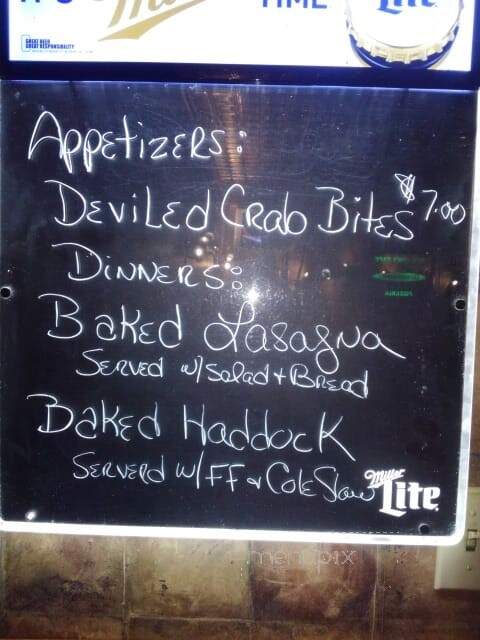 TIME
Lite
GREAT BEER
GREAT RESPONSIBILITY
Appetizers:
Deviled Crab Bites $7.00
Dinners:
Baked Lasagna
Served w/Salad + Bread
Baked Haddock
Serverd w/FF & Cole Slaw
Miller
Lite
menupix